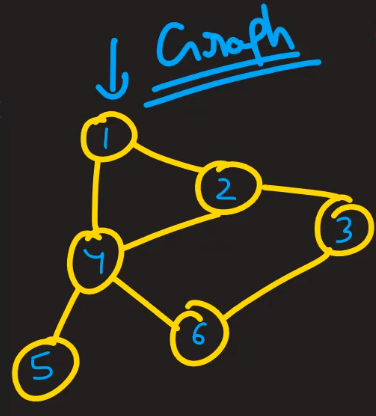 Graph
1
2
3
4
6
5